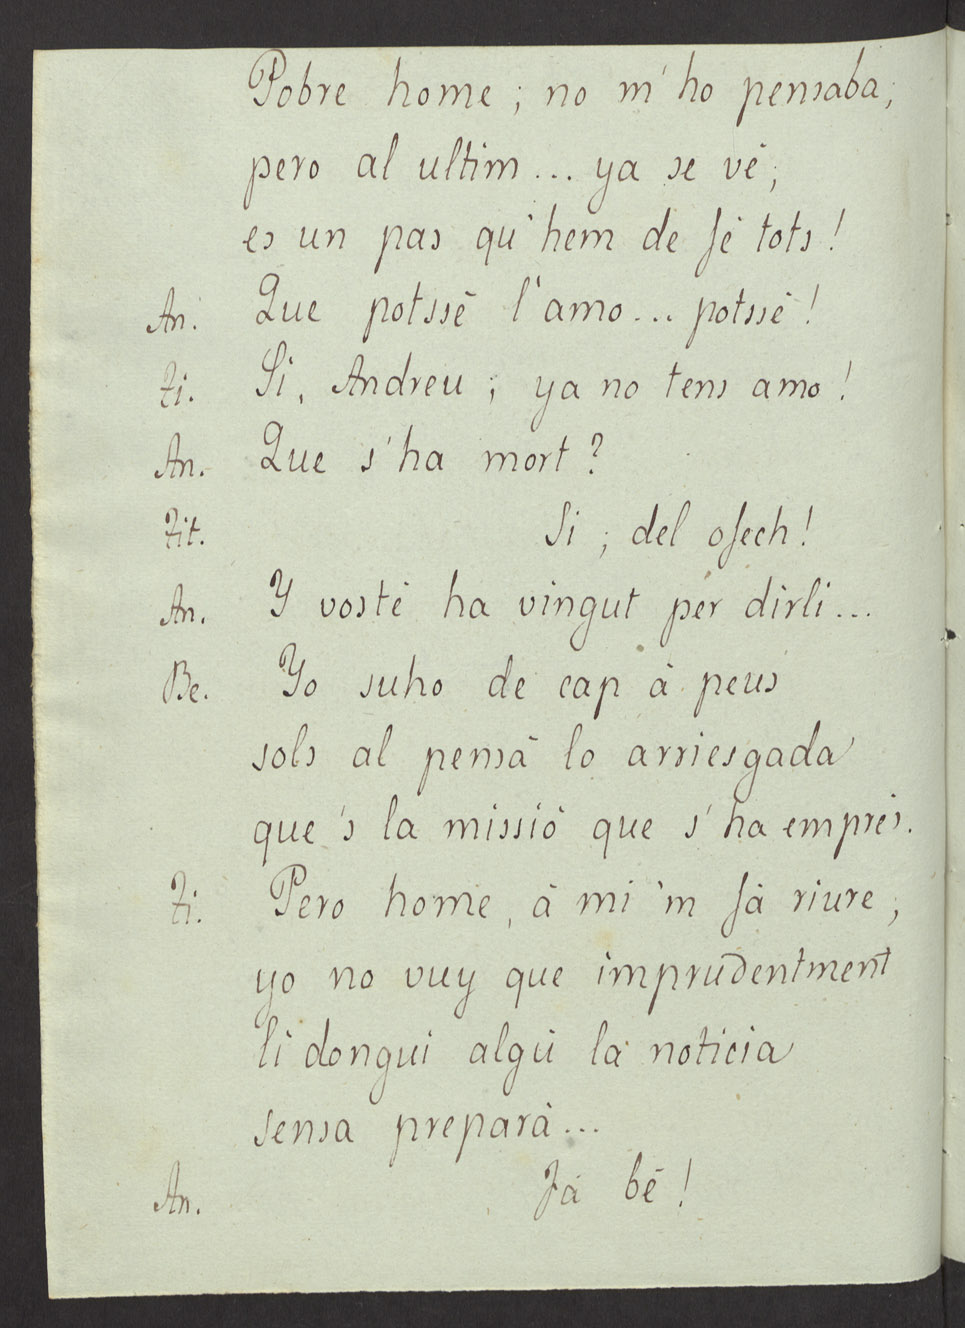 Pobre home; no m'ho pensaba,
pero al ultim... ya se vé;
es un pas qu'hem de fé tots!
An. Que potssé l'amo... potssé!
Ti. Si, Andreu; ya no tens amo!
An. Que s'ha mort?
Tit. Si; del ofech!
An. Y vosté ha vingut per dirli...
Be. Yo suho de cap á peus
sols al pensá lo arriesgada
que's la missió que s'ha emprés.
Ti. Pero home, á mi 'm fá riure;
yo no vuy que imprudentment
li dongui algú la noticia
sensa prepará...
An. Fá bé!